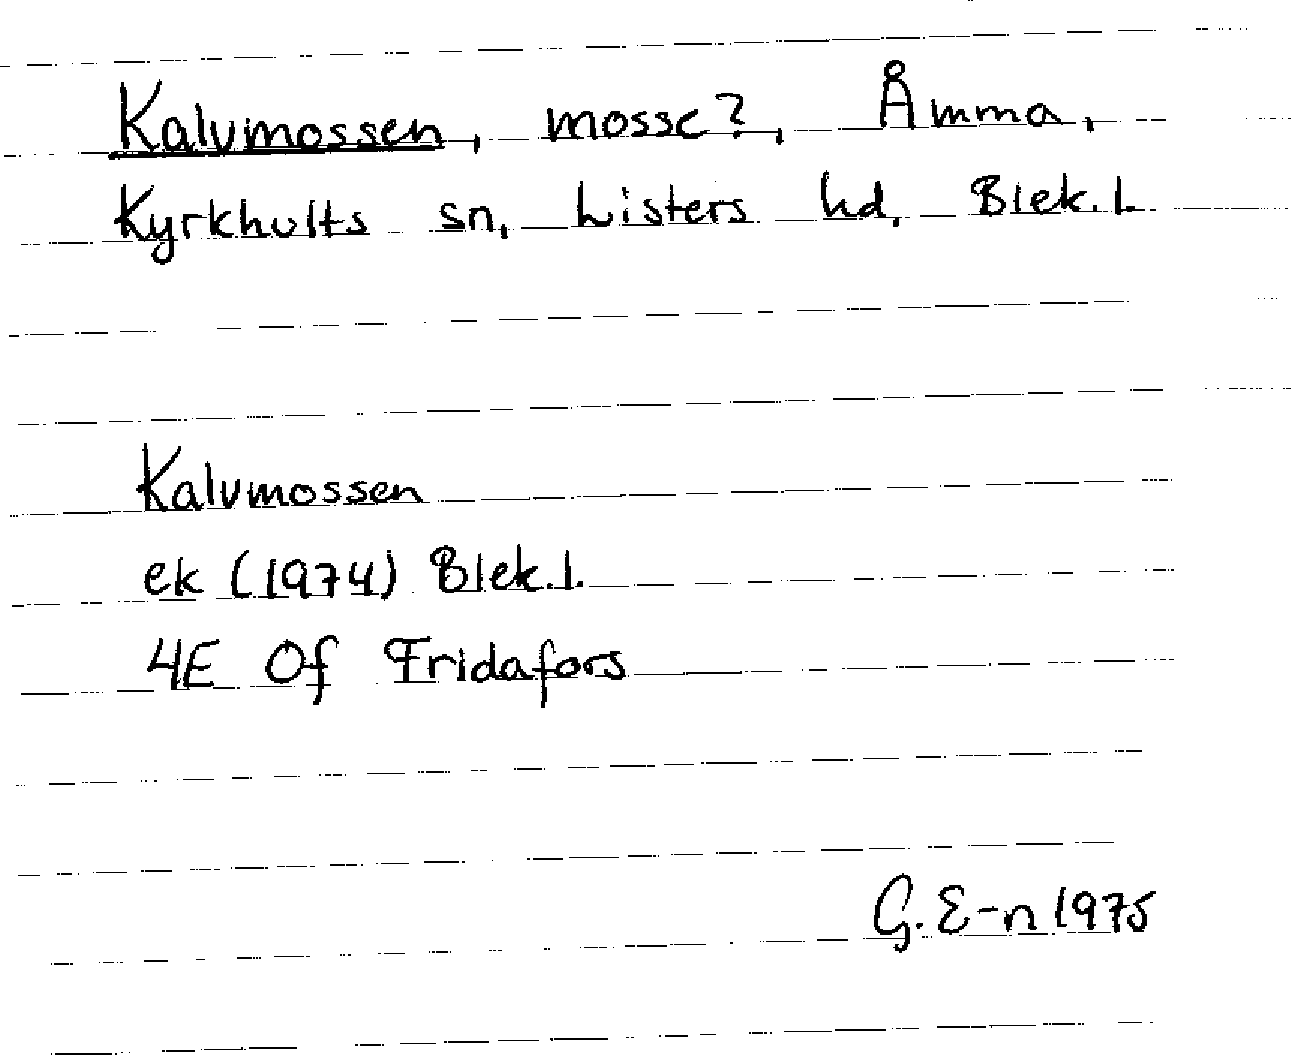 Kalvmossen, mosse?, Åmma,
Kyrkhults sn, Listers hd, Blek.l.
Kalvmossen
ek (1974) Blek.l.
4E 0f Fridafors
G. E-n 1975